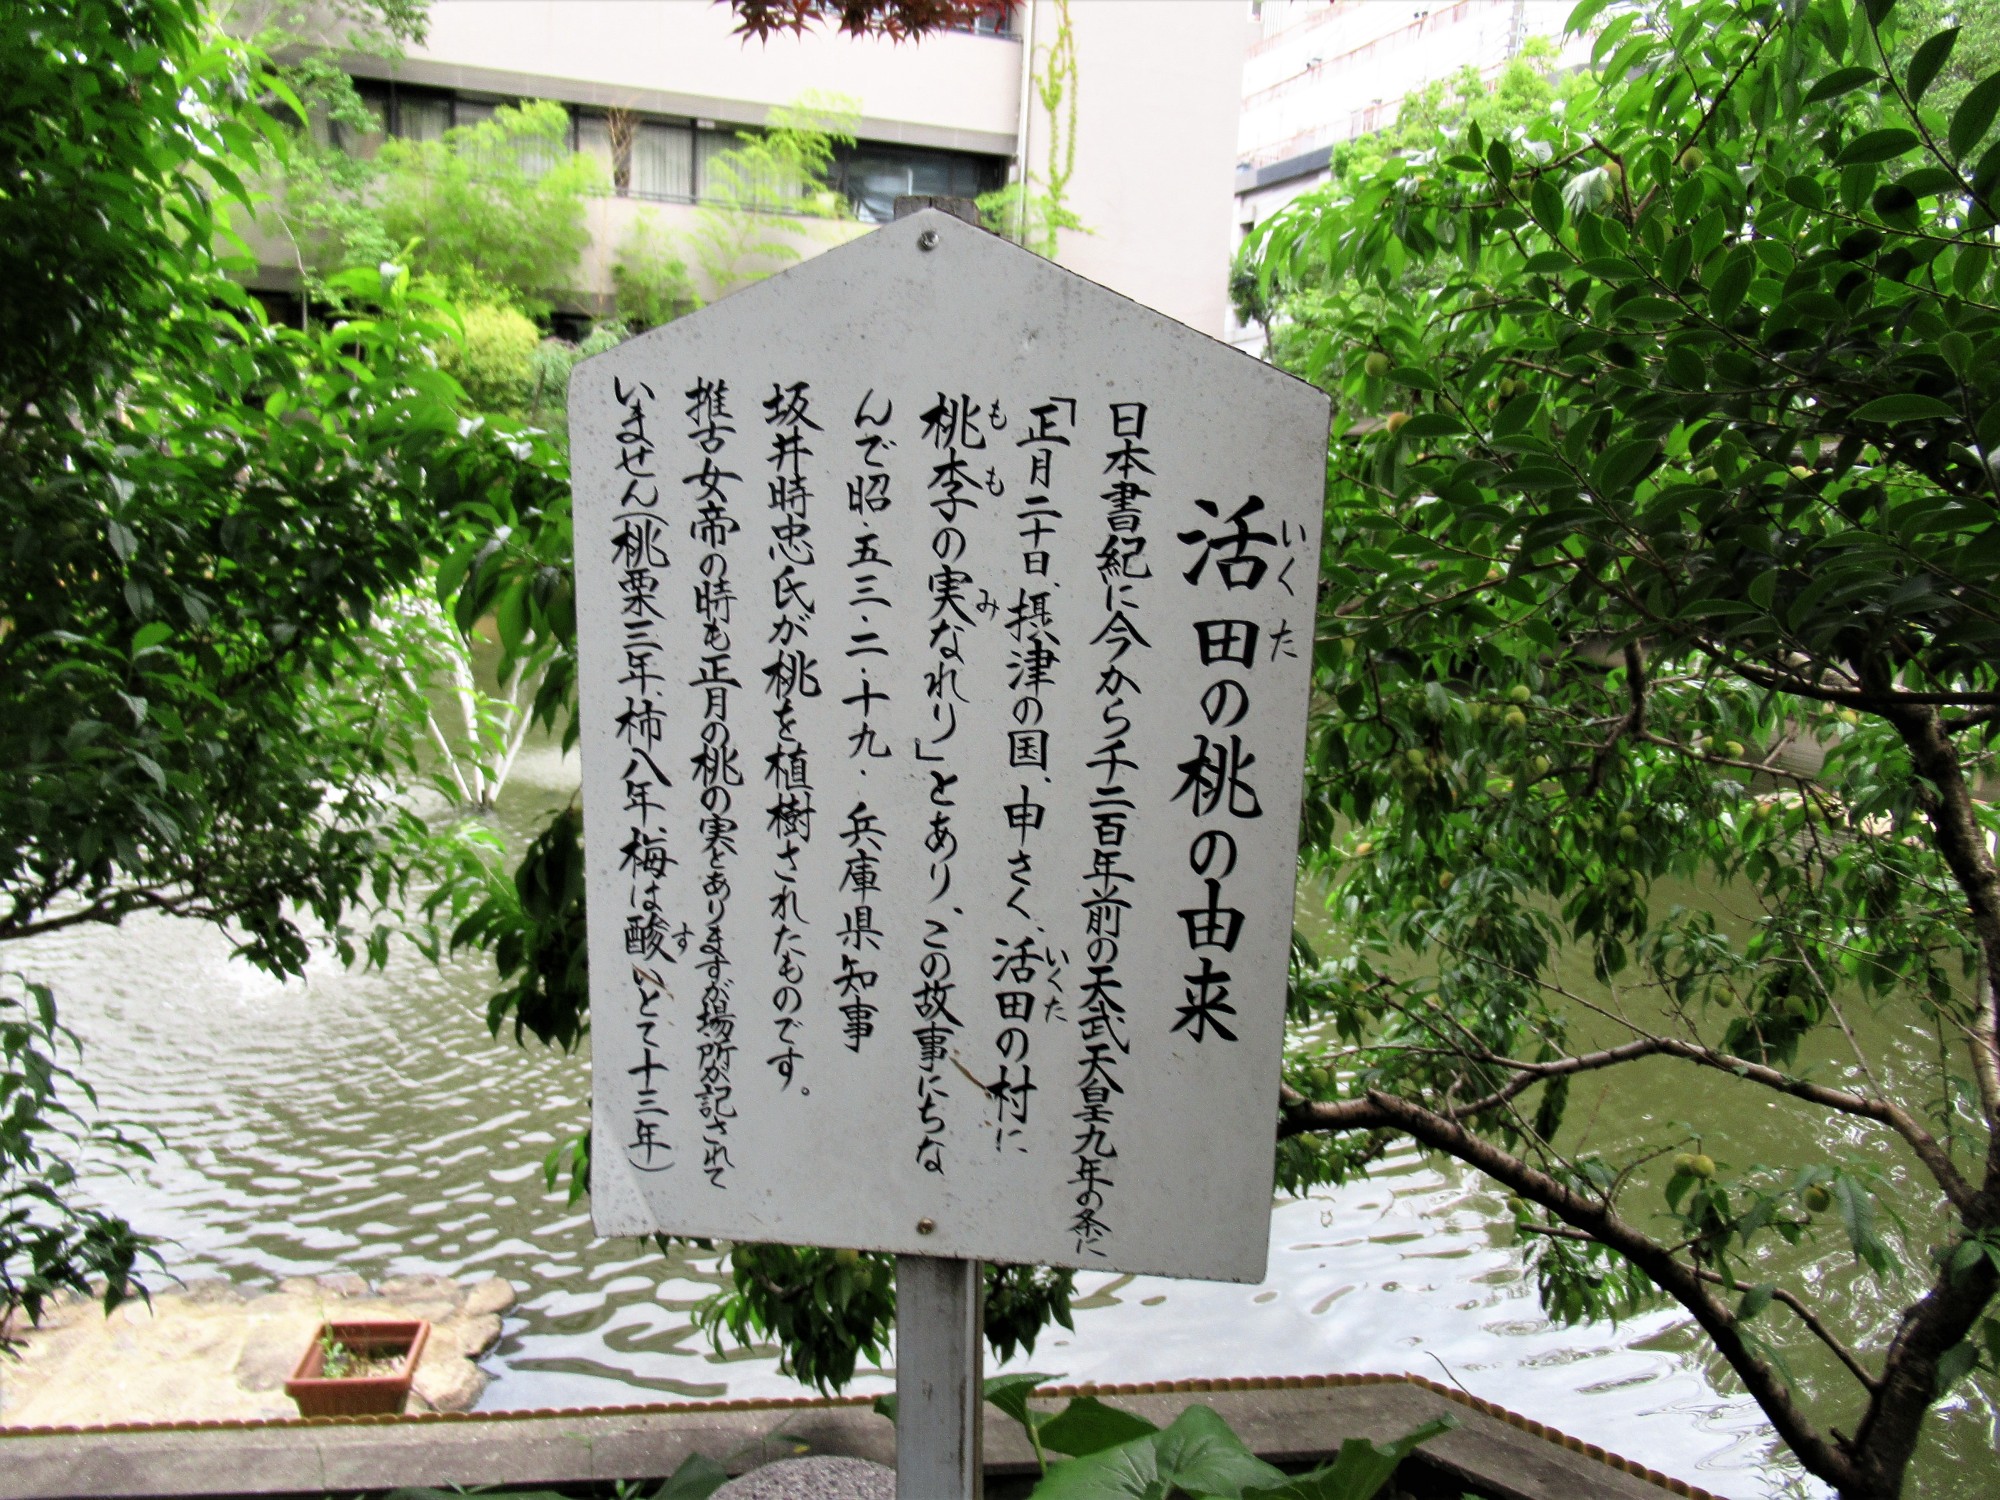 活田の桃の由来
いくた
日本書紀に今から千二百年前の天武天皇九年の条に
「正月二十日、摂津の国、申さく、活田の村に
いくた
桃李の実なれり」とあり、この故事にちな
もも も み
んで昭・五三・二・十九・兵庫県知事
坂井時忠氏が桃を植樹されたものです。
推古女帝の時も正月の桃の実とありますが場所が記されて
いません(桃栗三年、柿八年、梅は酸いとて十三年)
す